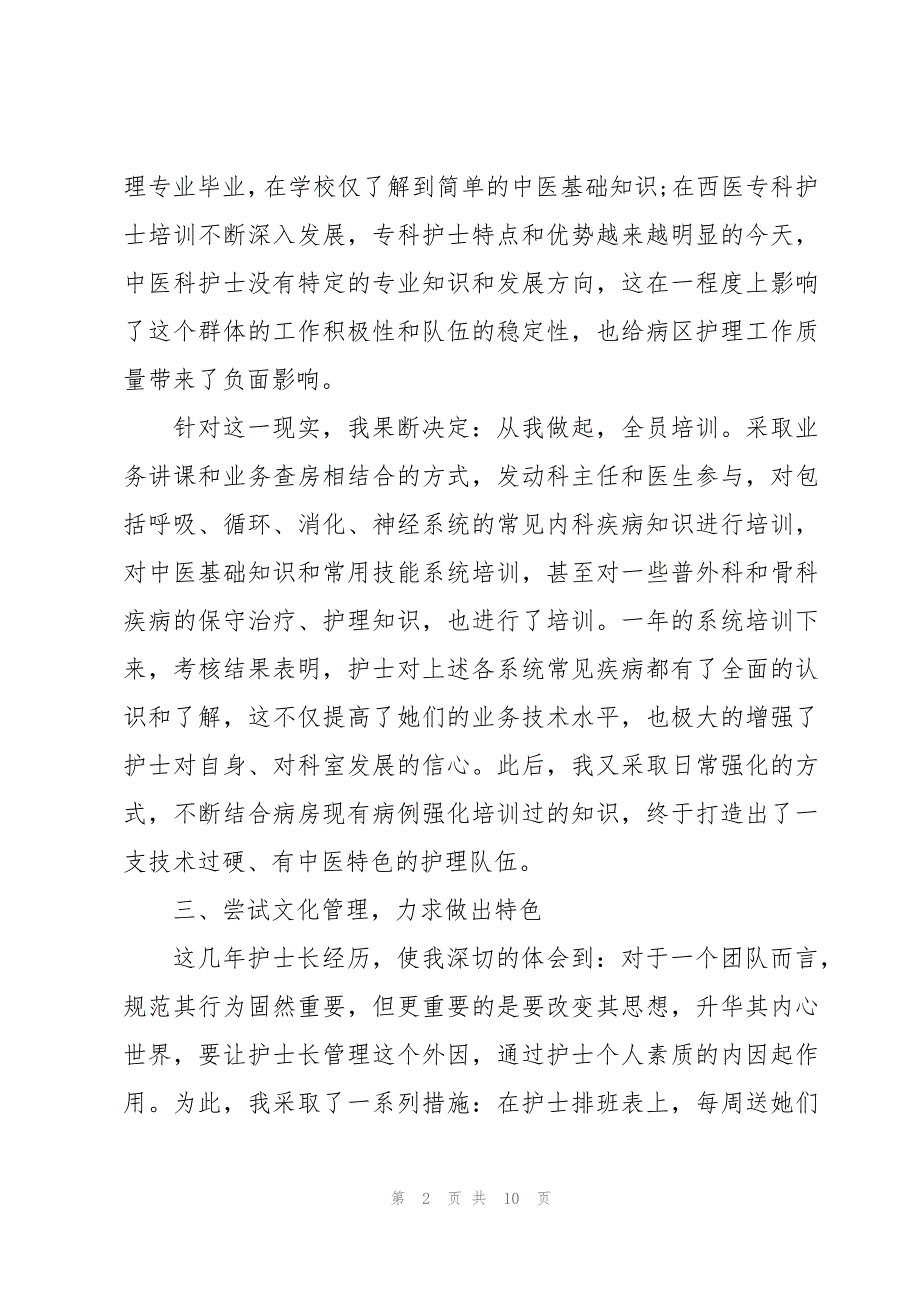 理专业毕业,在学校仅了解到简单的中医基础知识;在西医专科护
士培训不断深入发展，专科护士特点和优势越来越明显的今天，
中医科护士没有特定的专业知识和发展方向，这在一程度上影响
了这个群体的工作积极性和队伍的稳定性，也给病区护理工作质
量带来了负面影响。
针对这一现实，我果断决定：从我做起，全员培训。采取业
务讲课和业务查房相结合的方式，发动科主任和医生参与，对包
括呼吸、循环、消化、神经系统的常见内科疾病知识进行培训，
对中医基础知识和常用技能系统培训，甚至对一些普外科和骨科
疾病的保守治疗、护理知识，也进行了培训。一年的系统培训下
来，考核结果表明，护士对上述各系统常见疾病都有了全面的认
识和了解，这不仅提高了她们的业务技术水平，也极大的增强了
护士对自身、对科室发展的信心。此后，我又采取日常强化的方
式，不断结合病房现有病例强化培训过的知识，终于打造出了一
支技术过硬、有中医特色的护理队伍。
三、尝试文化管理，力求做出特色
这几年护士长经历，使我深切的体会到：对于一个团队而言，
规范其行为固然重要，但更重要的是要改变其思想，升华其内心
世界，要让护士长管理这个外因，通过护士个人素质的内因起作
用。为此，我采取了一系列措施：在护士排班表上，每周送她们
第 2 页 共 10 页